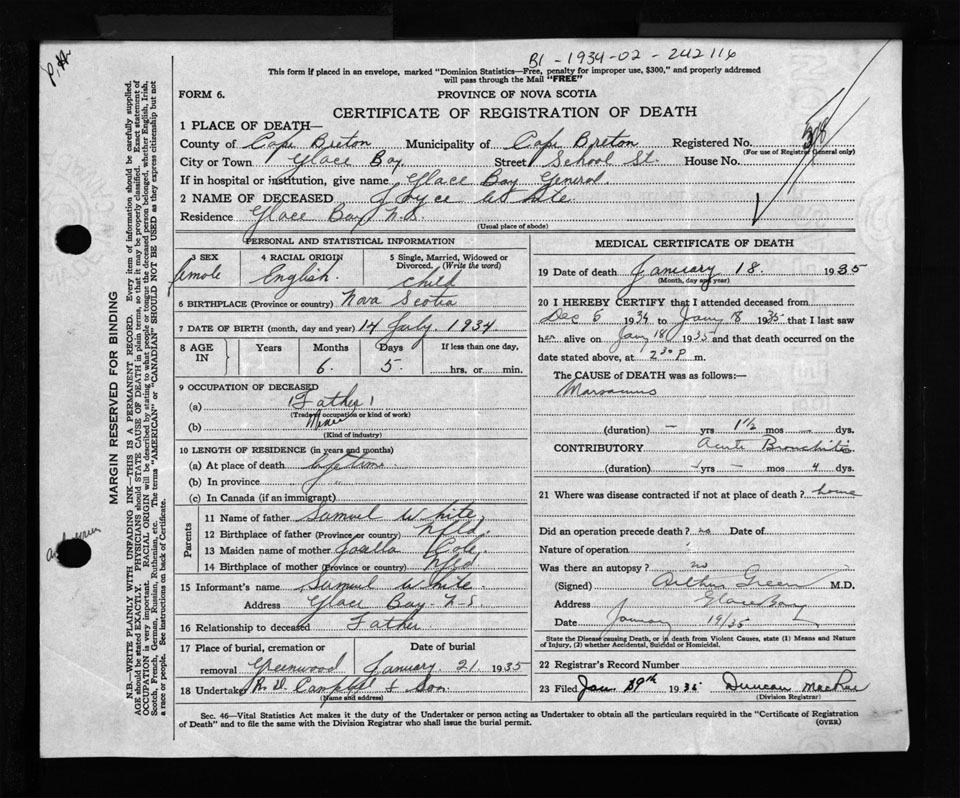 B1 - 1934-02 - 242116
This form if placed in an envelope, marked "Dominion Statistics—Free, penalty for improper use, $300," and properly addressed
will pass through the Mail "FREE"
FORM 6. PROVINCE OF NOVA SCOTIA
CERTIFICATE OF REGISTRATION OF DEATH
1 PLACE OF DEATH—
County of Cape Breton Municipality of Cape Breton Registered No.
(For use of Registrar General only)
City or Town Glace Bay Street School St. House No.
If in hospital or institution, give name Glace Bay General.
2 NAME OF DECEASED Joyce White
Residence Glace Bay N.S.
(Usual place of abode)
PERSONAL AND STATISTICAL INFORMATION
3 SEX 4 RACIAL ORIGIN 5 Single, Married, Widowed or Divorced. (Write the word)
female English. Child
6 BIRTHPLACE (Province or country) Nova Scotia
7 DATE OF BIRTH (month, day and year) 14 July. 1934.
8 AGE IN Years Months Days If less than one day,
6. 5. hrs. or min.
9 OCCUPATION OF DECEASED
(a) (Father)
(Trade, occupation or kind of work)
(b) Miner
(Kind of industry)
10 LENGTH OF RESIDENCE (in years and months)
(a) At place of death life time.
(b) In province " "
(c) In Canada (if an immigrant)
Parents
11 Name of father Samuel White,
12 Birthplace of father (Province or country) Nfld
13 Maiden name of mother Cole,
14 Birthplace of mother (Province or country) Nfld
15 Informant's name Samuel White
Address Glace Bay N.S.
16 Relationship to deceased Father.
17 Place of burial, cremation or removal Date of burial
Greenwood January 21 1935
18 Undertaker Campbell & Son
(Name and address)
MEDICAL CERTIFICATE OF DEATH
19 Date of death January 18. 1935
(Month, day and year)
20 I HEREBY CERTIFY that I attended deceased from
Dec 6 1934 to Jany 18 1935 that I last saw
her alive on Jany 18 1935 and that death occurred on the
date stated above, at 2 30 P m.
The CAUSE of DEATH was as follows:—
Marasmus
(duration) — yrs 1½ mos — dys.
CONTRIBUTORY Acute Bronchitis
(duration) - yrs - mos 4 dys.
21 Where was disease contracted if not at place of death? home
Did an operation precede death? no Date of
Nature of operation
Was there an autopsy? no
(Signed) Arthur Green M.D.
Address Glace Bay
Date January 19/35
State the Disease causing Death, or in death from Violent Causes, state (1) Means and Nature
of Injury, (2) whether Accidental, Suicidal or Homicidal.
22 Registrar's Record Number
23 Filed Jan 1935 Duncan MacRae
(Division Registrar)
Sec. 46—Vital Statistics Act makes it the duty of the Undertaker or person acting as Undertaker to obtain all the particulars required in the "Certificate of Registration
of Death" and to file the same with the Division Registrar who shall issue the burial permit. (OVER)
MARGIN RESERVED FOR BINDING
N.B.—WRITE PLAINLY WITH UNFADING INK—THIS IS A PERMANENT RECORD. Every item of information should be carefully supplied.
AGE should be stated EXACTLY. PHYSICIANS should STATE CAUSE OF DEATH in plain terms, so that it may be properly classified. Exact statement of
OCCUPATION is very important. RACIAL ORIGIN will be described by stating to what people or tongue the deceased person belonged, whether English, Irish,
Scotch, French, German, Russian, Ruthenian, etc. The terms "AMERICAN" or "CANADIAN" SHOULD NOT BE USED as they express citizenship but not
a race or people. See instructions on back of Certificate.